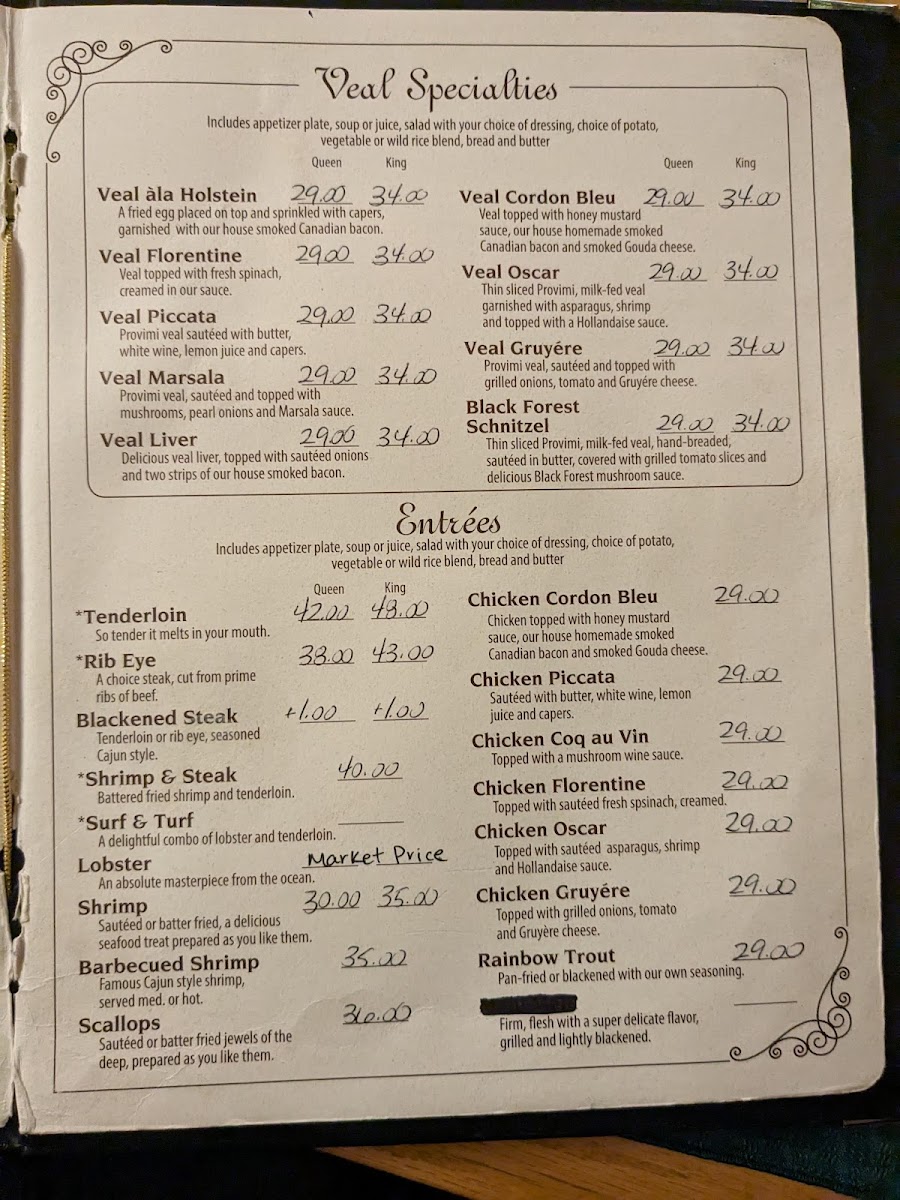 Veal Specialties
Includes appetizer plate, soup or juice, salad with your choice of dressing, choice of potato,
vegetable or wild rice blend, bread and butter
Queen King
Veal àla Holstein 29.00 34.00
A fried egg placed on top and sprinkled with capers,
garnished with our house smoked Canadian bacon.
Veal Florentine 29.00 34.00
Veal topped with fresh spinach,
creamed in our sauce.
Veal Piccata 29.00 34.00
Provimi veal sautéed with butter,
white wine, lemon juice and capers.
Veal Marsala 29.00 34.00
Provimi veal, sautéed and topped with
mushrooms, pearl onions and Marsala sauce.
Veal Liver 29.00 34.00
Delicious veal liver, topped with sautéed onions
and two strips of our house smoked bacon.
Queen King
Veal Cordon Bleu 29.00 34.00
Veal topped with honey mustard
sauce, our house homemade smoked
Canadian bacon and smoked Gouda cheese.
Veal Oscar 29.00 34.00
Thin sliced Provimi, milk-fed veal
garnished with asparagus, shrimp
and topped with a Hollandaise sauce.
Veal Gruyére 29.00 34.00
Provimi veal, sautéed and topped with
grilled onions, tomato and Gruyére cheese.
Black Forest
Schnitzel 29.00 34.00
Thin sliced Provimi, milk-fed veal, hand-breaded,
sautéed in butter, covered with grilled tomato slices and
delicious Black Forest mushroom sauce.
Entrées
Includes appetizer plate, soup or juice, salad with your choice of dressing, choice of potato,
vegetable or wild rice blend, bread and butter
Queen King
*Tenderloin 42.00 48.00
So tender it melts in your mouth.
*Rib Eye 38.00 43.00
A choice steak, cut from prime
ribs of beef.
Blackened Steak +1.00 +1.00
Tenderloin or rib eye, seasoned
Cajun style.
*Shrimp & Steak 40.00
Battered fried shrimp and tenderloin.
*Surf & Turf
A delightful combo of lobster and tenderloin.
Lobster Market Price
An absolute masterpiece from the ocean.
Shrimp 30.00 35.00
Sautéed or batter fried, a delicious
seafood treat prepared as you like them.
Barbecued Shrimp 35.00
Famous Cajun style shrimp,
served med. or hot.
Scallops 36.00
Sautéed or batter fried jewels of the
deep, prepared as you like them.
Chicken Cordon Bleu 29.00
Chicken topped with honey mustard
sauce, our house homemade smoked
Canadian bacon and smoked Gouda cheese.
Chicken Piccata 29.00
Sautéed with butter, white wine, lemon
juice and capers.
Chicken Coq au Vin 29.00
Topped with a mushroom wine sauce.
Chicken Florentine 29.00
Topped with sautéed fresh spsinach, creamed.
Chicken Oscar 29.00
Topped with sautéed asparagus, shrimp
and Hollandaise sauce.
Chicken Gruyére 29.00
Topped with grilled onions, tomato
and Gruyère cheese.
Rainbow Trout 29.00
Pan-fried or blackened with our own seasoning.
Firm, flesh with a super delicate flavor,
grilled and lightly blackened.